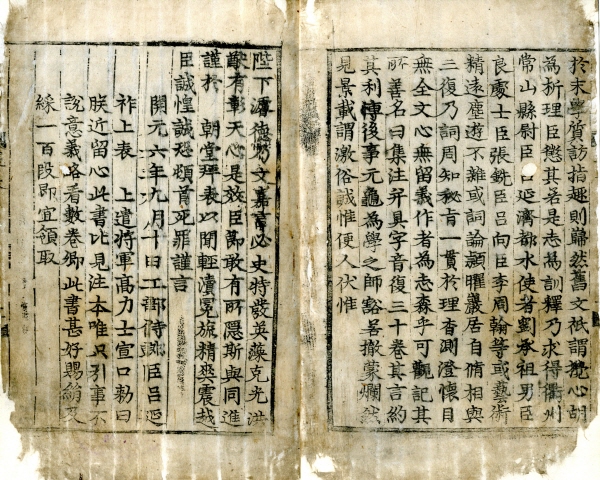 於末學質訪指趣則巋然舊文祇謂攪心胡
為析理臣懲其若是志為訓釋乃求得衢州
常山縣尉臣呂延濟都水使者劉承祖男臣
良處士臣張銑臣呂向臣李周翰等或藝術
精遠塵遊不雜或詞論穎曜巖居自脩相與
三復乃詞周知秘旨一貫於理杳測澄懷目
無全文心無留義作者為志森乎可觀記其
所善名曰集注并具字音復三十卷其言約
其利博後事元龜為學之師豁若撤蒙爛然
見景載謂激俗誠惟便人伏惟
陛下濬德乃文嘉言必史特發英藻克光洪
猷有彰天心是效臣節敢有所隱斯與同進
謹於 朝堂拜表以聞輕瀆冕旒精爽震越
臣誠惶誠恐頓首死罪謹言
開元六年九月十日工部侍郎臣呂延
祚上表 上遣將軍高力士宣口勅曰
朕近留心此書比見注本唯只引事不
說意義略看數卷卿此書甚好賜絹及
綵一百段即宜領取